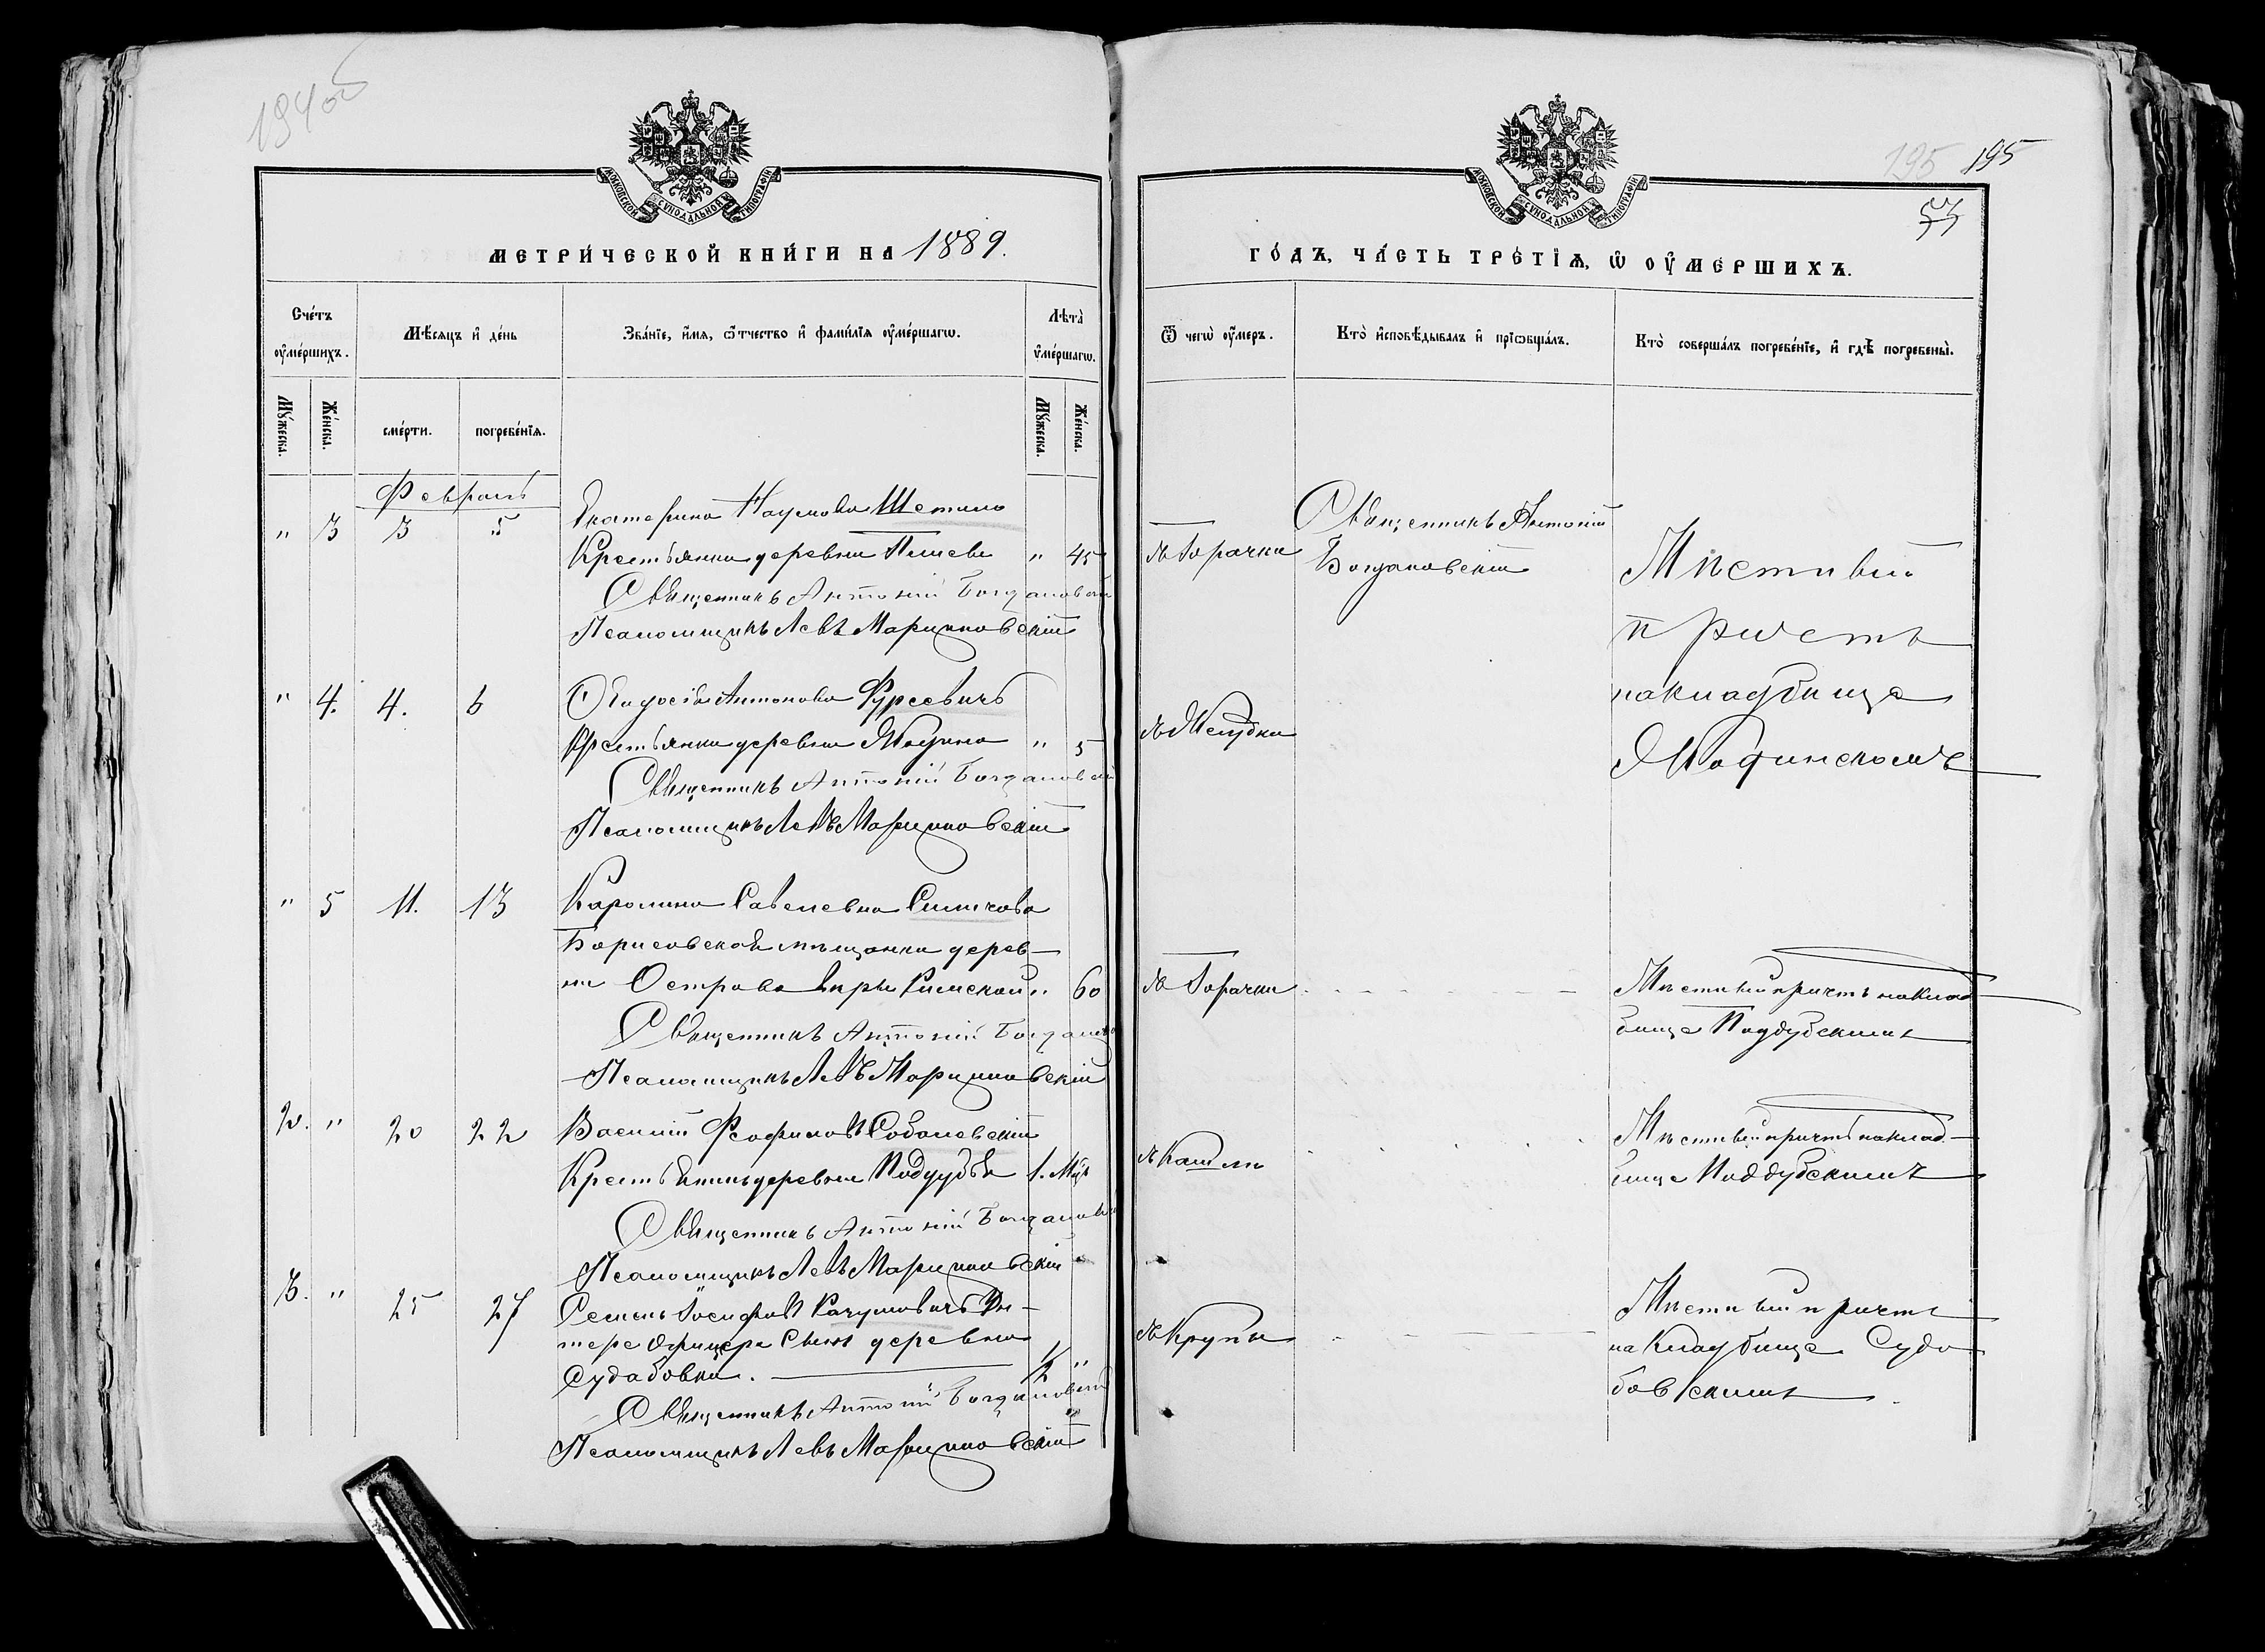 194об
МОСКОВСКОЙ СѴНОДАЛЬНОЙ ТИПОГРАФІИ
МЕТРИ́ЧЕСКОЙ КНИ́ГИ НА 1889.
Сче́тъ оу҆ме́ршихъ.
Мѣ́сяцъ и҆ де́нь
Зва́нїе, и҆́мя, ѻ҆́тчество и҆ фами́лїя оу҆ме́ршагѡ.
Лѣ́та оу҆ме́ршагѡ.
Мꙋ́жеска.
Же́нска.
сме́рти.
погребе́нїѧ.
Мꙋ́жеска.
Же́нска.
Февраль
" 3 3 5 Екатерина Наумова Шетило
Крестьянка деревни " 45
Священникъ Антоній Богдановскій
Псаломщикъ Левъ Марциновскій
" 4. 4. 6 Антонова Фурсевичъ
Крестьянка деревни " 5
Священникъ Антоній Богдановскій
Псаломщикъ Левъ Марциновскій
" 5 11. 13 Каролина Савелевна
Борисовской мѣщанки дерев-
ни Острова вѣры Римской " 60
Священникъ Антоній
Псаломщикъ Левъ Марциновскій
2. " 20 22 Василій Феофиловъ Соболевскій
Крестьянинъ деревни 1. Мѣс
Священникъ Антоній
Псаломщикъ Левъ Марциновскій
3. " 25 27 Семенъ Іосифовъ Рачуновичъ Ун-
теръ Офицера сынъ деревни
Судабовки. 1/2 "
Священникъ Антоній Богдановскій
Псаломщикъ Левъ Марциновскій
195 195
53
МОСКОВСКОЙ СѴНОДАЛЬНОЙ ТИПОГРАФІИ
ГО́ДЪ, ЧА́СТЬ ТРЕ́ТЇѦ, Ѡ҆ ОУ҆МЕРШИХЪ.
Ѿ чегѡ̀ оу҆́меръ.
Кто̀ и҆сповѣ́дывалъ и҆ прїѡбща́лъ.
Кто̀ соверша́лъ погребе́нїе, и҆ гдѣ̀ погребены̀.
Священникъ Антоній
Богдановскій
Горячки
Мѣстный
причтъ
на кладбище
Жодинскомъ
Желудка
Горячки
Мѣстный причтъ на клад-
бище Поддубскимъ
Кашля
Мѣстный причтъ на клад-
бище Поддубскимъ
Крупа
Мѣстный причтъ
на кладбище Судо-
бовскимъ